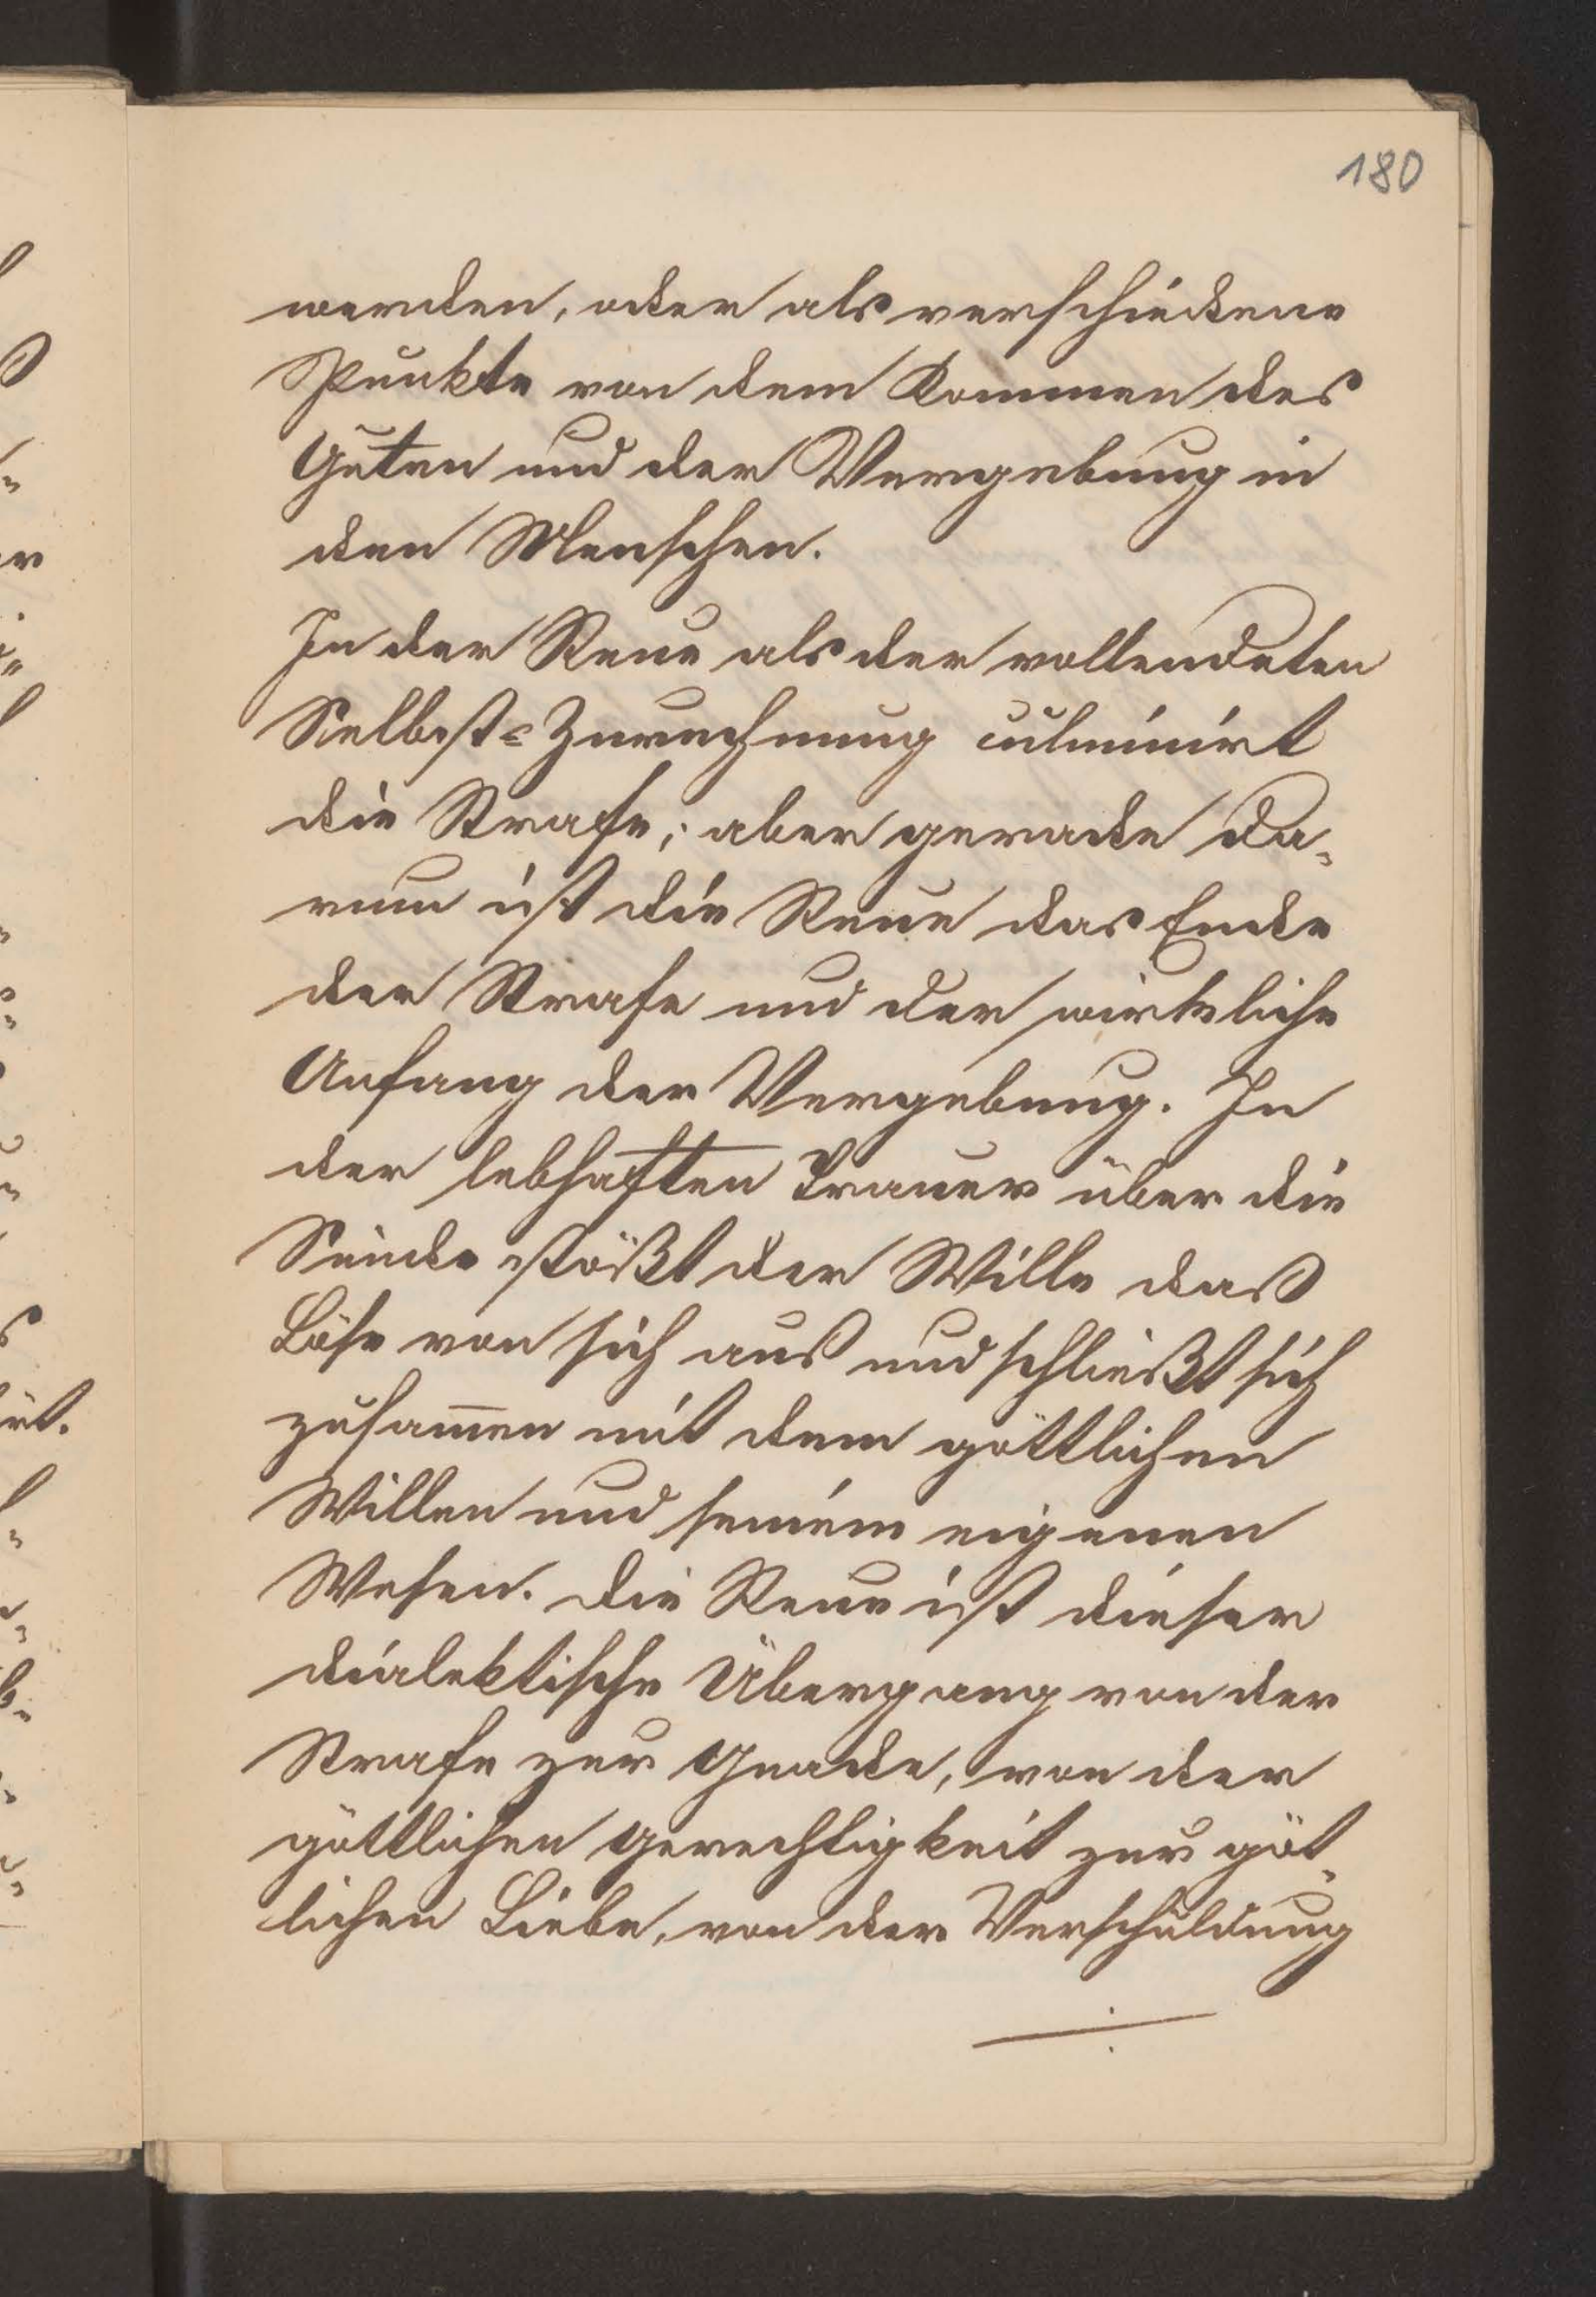 180
werden, oder als verschiedene
Punkte von dem Kommen des
Guten und der Vergebung in
den Menschen.
In der Reue als der vollendeten
Selbst-Zurechnung culminirt
die Strafe; aber gerade da-
rum ist die Reue das Ende
der Strafe und der wirkliche
Anfang der Vergebung. In
der lebhaften Trauer über die
Sünde stößt der Wille das
Böse von sich aus und schließt sich
zusam̅en mit dem göttlichen
Willen und seinem eigenen
Wesen. Die Reue ist dieser
dialektische Übergang von der
Strafe zur Gnade, von der
göttlichen Gerechtigkeit zur göt-
lichen Liebe, von der Verschuldung